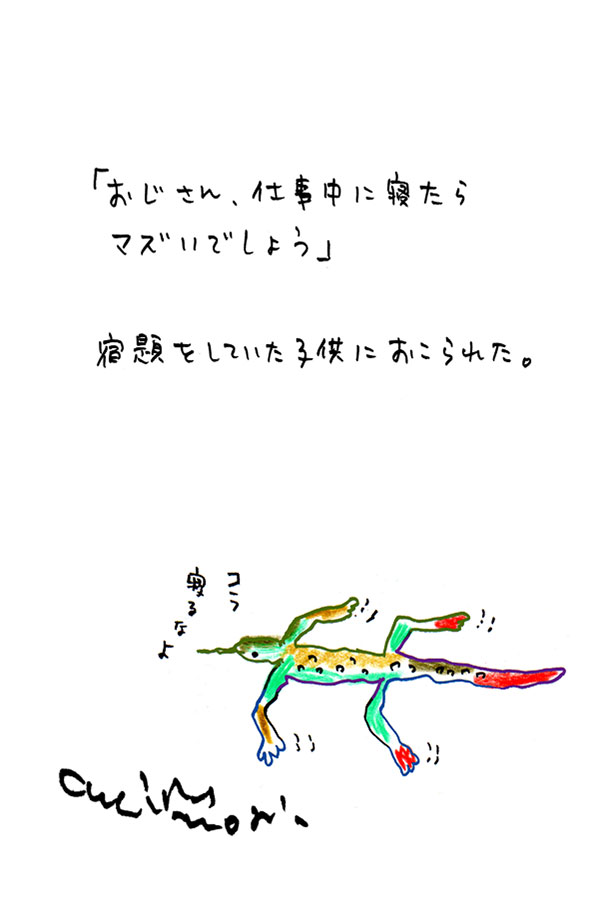 「おじさん、仕事中に寝たら
マズいでしょう」
宿題をしていた子供におこられた。
コラ
寝るなよ